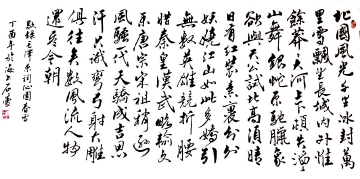 北國風光千里冰封萬
里雪飄望長城内外惟
餘莽莽大河上下頓失滔滔
山舞銀蛇原馳臘象
欲與天公試比高須晴
日看紅裝素裹分外
妖嬈江山如此多嬌引
無數英雄競折腰
惜秦皇漢武略輸文
采唐宗宋祖稍遜
風騷一代天驕成吉思
汗只識彎弓射大雕
俱往矣數風流人物
還看今朝
錄毛澤東词沁園春雪
丁酉年於海